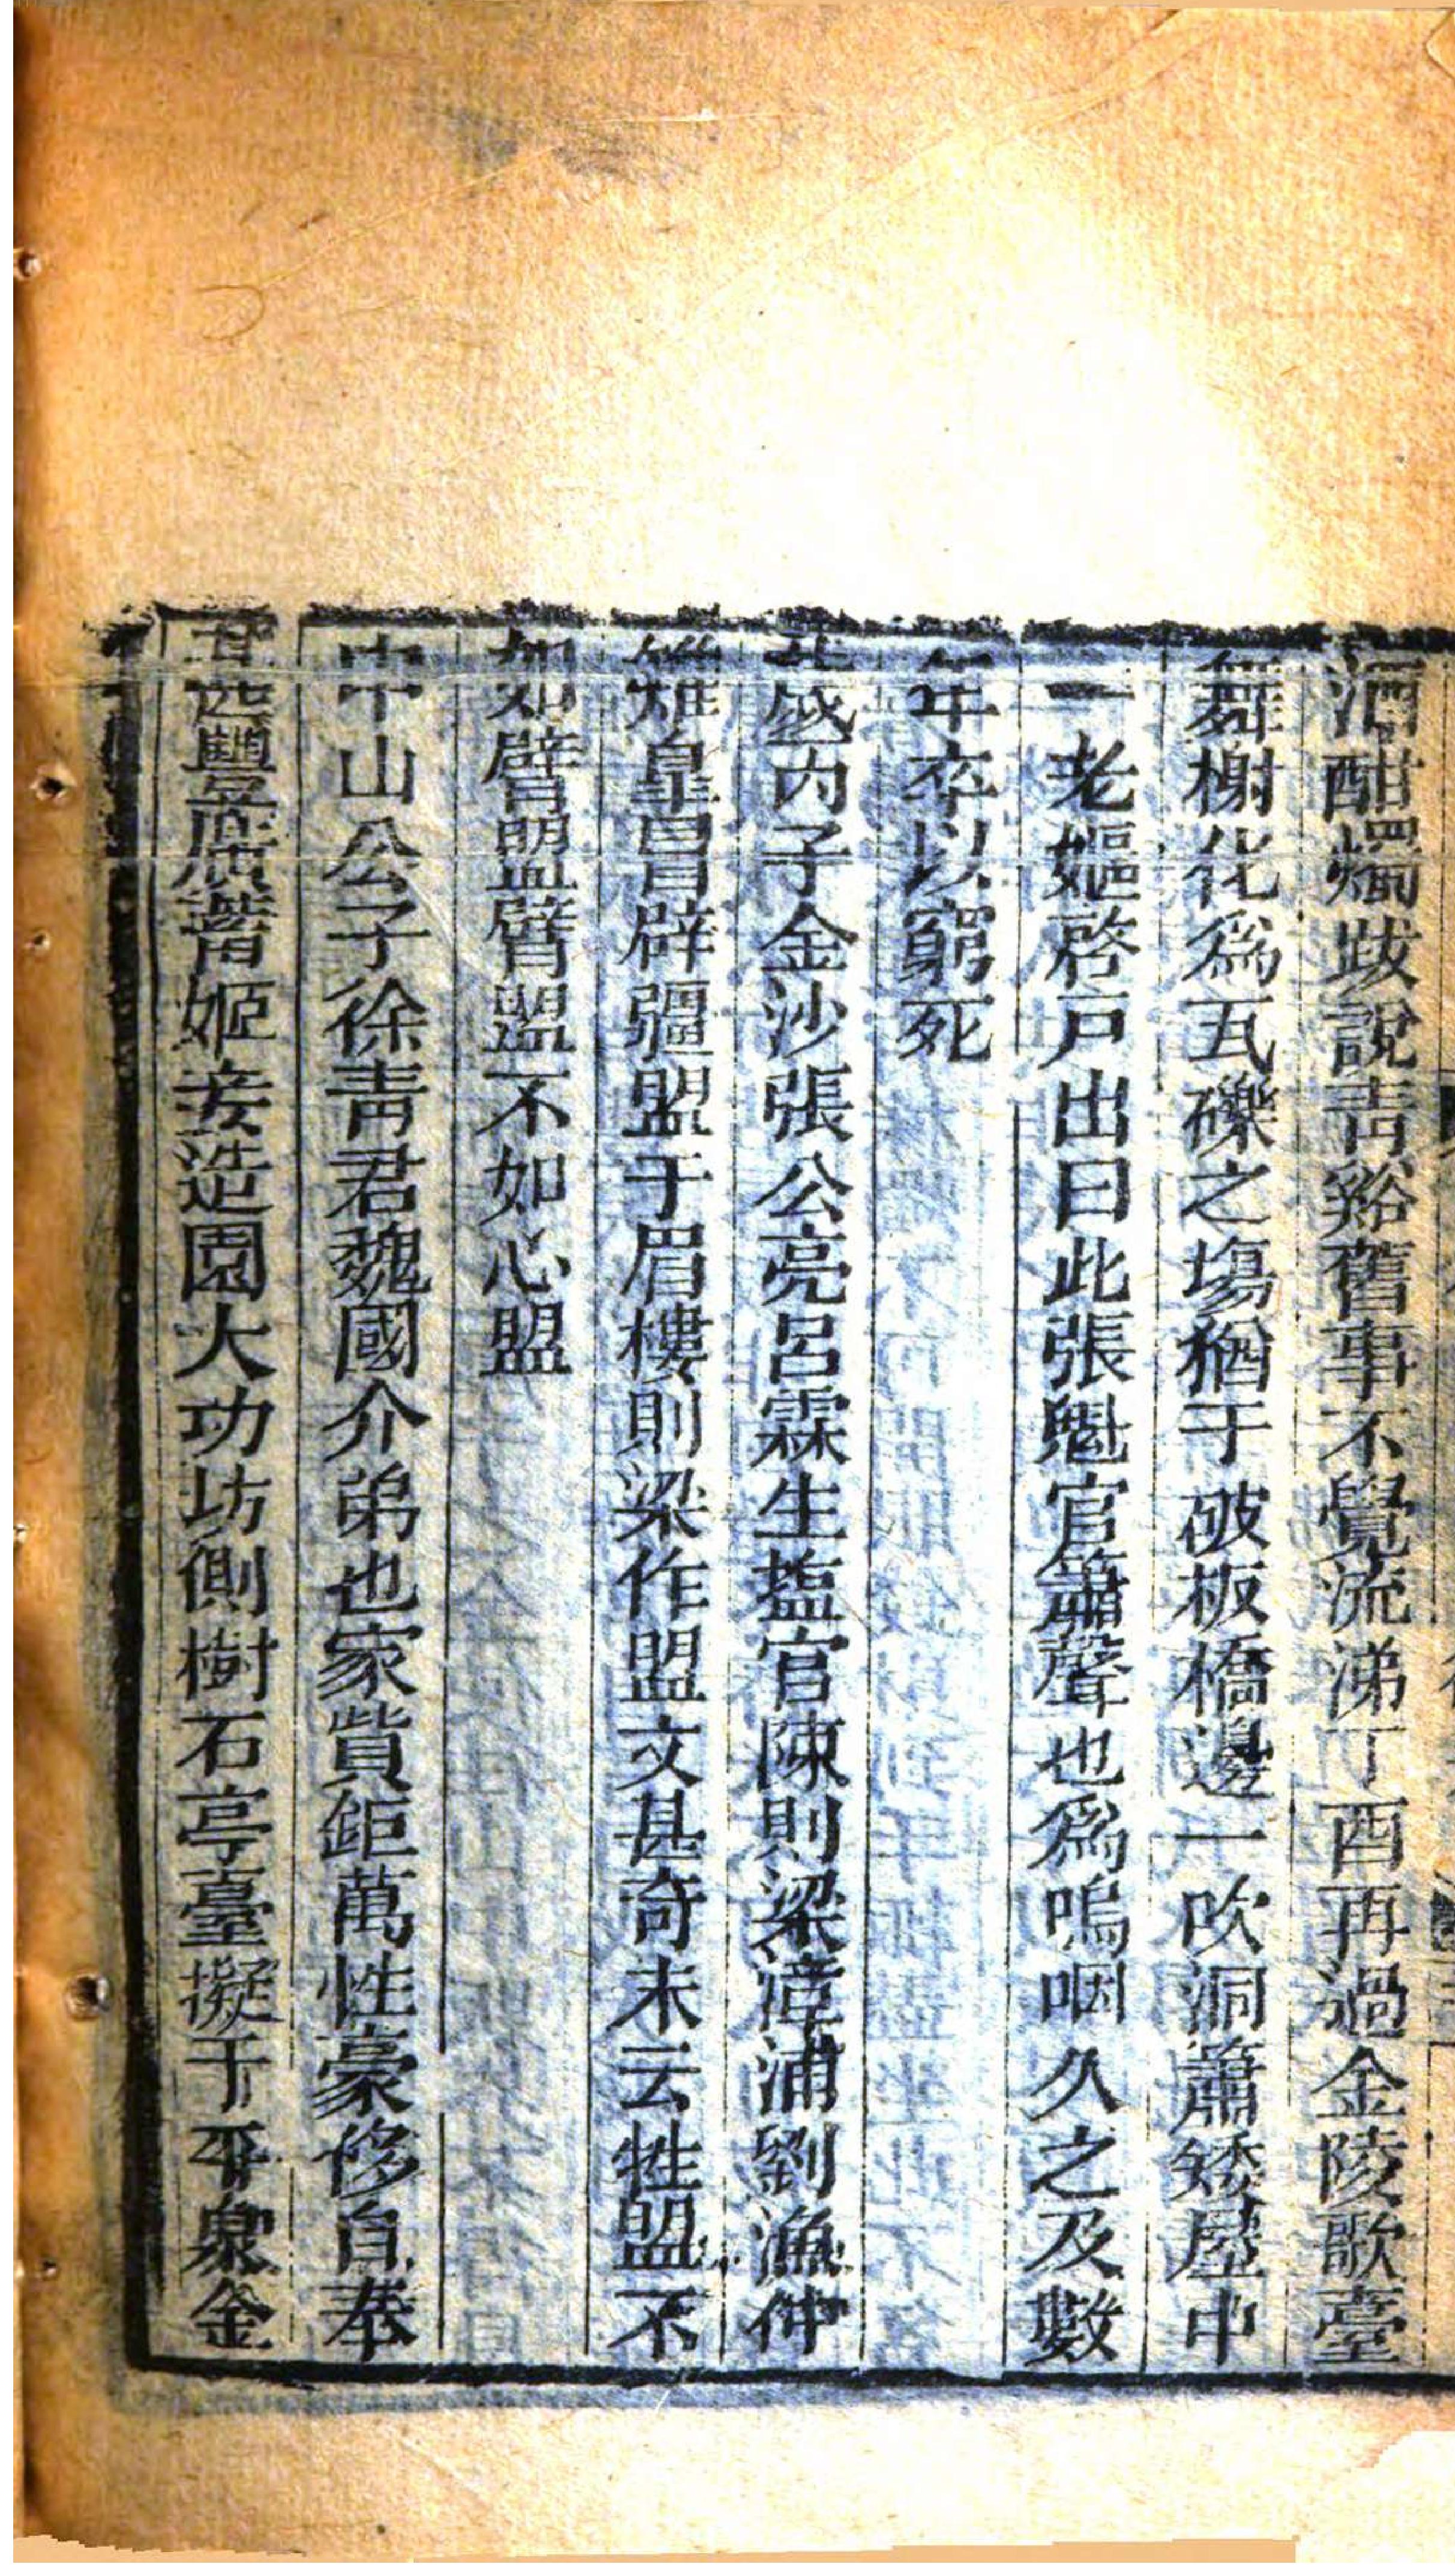 酒酣燭跋說青谿舊事不覺流涕丁酉再過金陵歌臺
舞榭化爲瓦礫之塲猶于破板橋邊一吹洞簫矮屋中
一老嫗啓戶出曰此張魁官簫聲也爲嗚咽久之及數
年卒以窮死
歲丙子金沙張公亮呂霖生塩官陳則梁漳浦劉漁仲
雉皐冒辟疆盟于眉樓則梁作盟文甚奇末云牲盟不
如臂盟臂盟不如心盟
中山公子徐青君魏國介弟也家貲鉅萬性豪侈自奉
甚豐廣蓄姬妾造園大功坊側樹石亭臺擬于平泉金